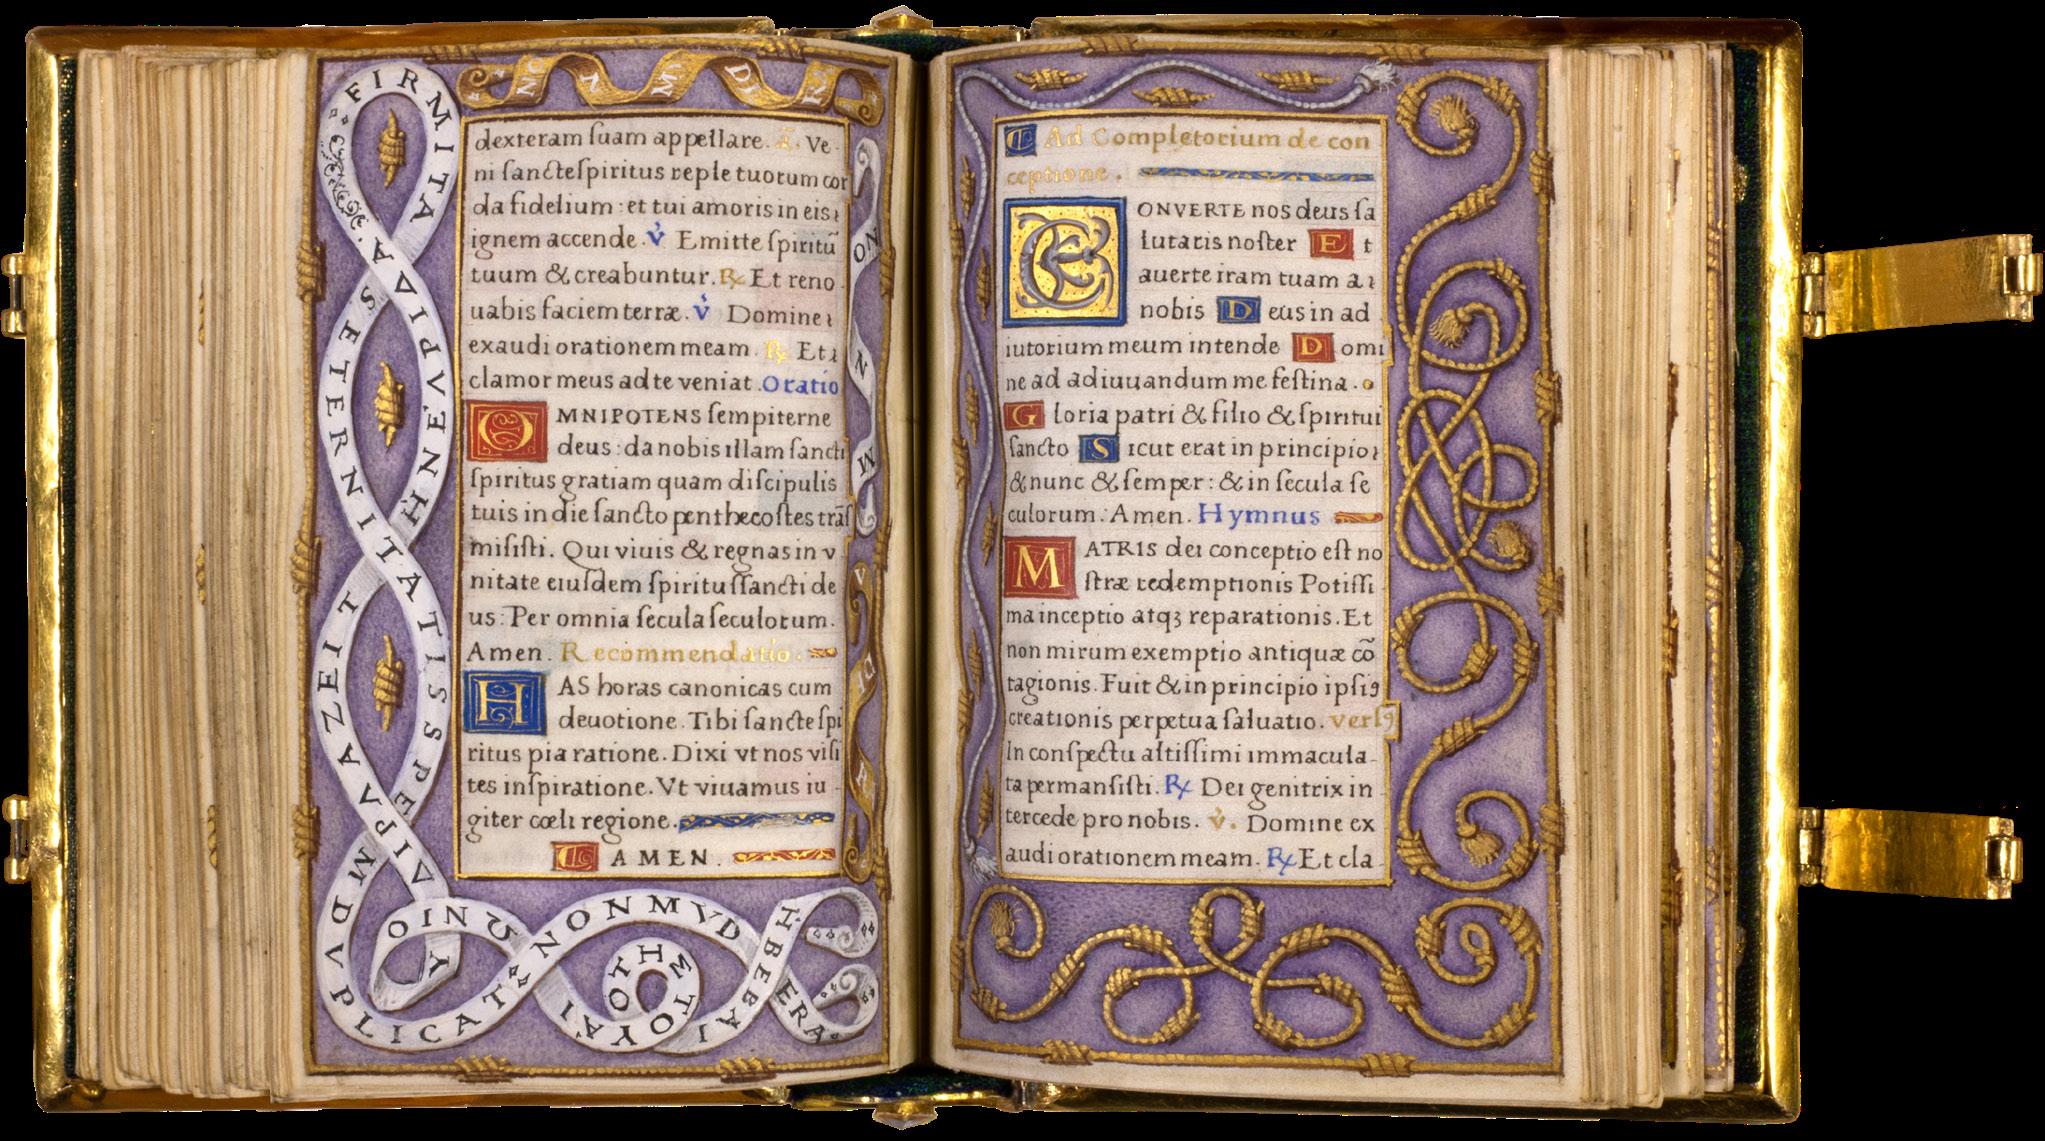 dexteram ſuam appellare. A. Ve
ni ſancteſpiritus reple tuorum cor
da fidelium : et tui amoris in eis
ignem accende. V̇ Emitte ſpiritū
tuum & creabuntur. ℞ Et reno
uabis faciem terræ. V̇ Domine
exaudi orationem meam. ℞ Et
clamor meus ad te veniat. Oratio
OMNIPOTENS ſempiterne
deus : da nobis illam ſancti
ſpiritus gratiam quam diſcipulis
tuis in die ſancto penthecoſtes trāſ
miſiſti. Qui viuis & regnas in v
nitate eiuſdem ſpiritus ſancti de
us : Per omnia ſecula ſeculorum.
Amen. Recommendatio.
HAS horas canonicas cum
deuotione. Tibi ſancte ſpi
ritus pia ratione. Dixi vt nos viſi
tes inſpiratione. Vt viuamus iu
giter cœli regione.
AMEN.
FIRMITA
NON MVD
PLICAT NON MVD
Ad Completorium de con
ceptione.
CONVERTE nos deus ſa
lutaris noſter Et
auerte iram tuam a
nobis Deus in ad
iutorium meum intende Domi
ne ad adiuuandum me feſtina.
Gloria patri & filio & ſpiritui
ſancto Sicut erat in principio
& nunc & ſemper : & in ſecula ſe
culorum. Amen. Hymnus
MATRIS dei conceptio eſt no
ſtræ redemptionis Potiſſi
ma inceptio atqꝫ reparationis. Et
non mirum exemptio antiquæ cō
tagionis. Fuit & in principio ipſiꝰ
creationis perpetua ſaluatio. verſꝰ
In conſpectu altiſſimi immacula
ta permanſiſti. ℞ Dei genitrix in
tercede pro nobis. V̇. Domine ex
audi orationem meam. ℞ Et cla